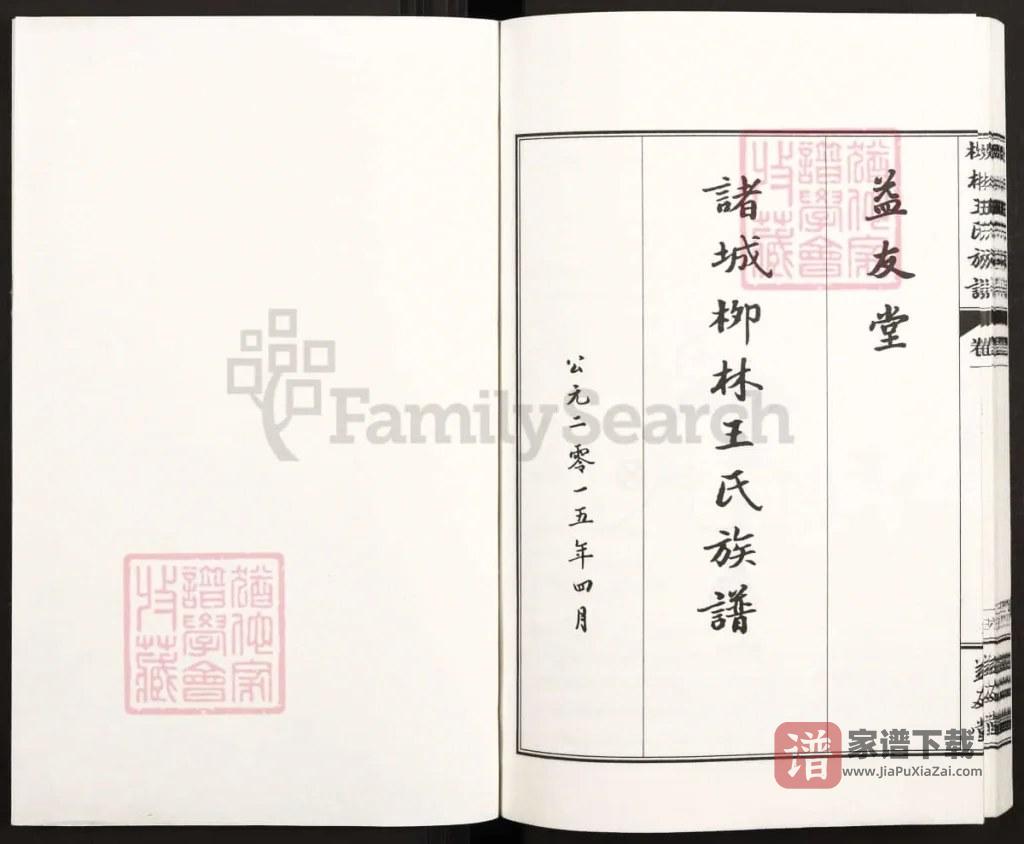 益友堂
諸城柳林王氏族譜
公元二零一五年四月
柳林王氏族譜
卷
益友堂
猶他家
譜學會
收藏
猶他家
譜學會
收藏
FamilySearch
谱
家谱下载
www.JiaPuXiaZai.com